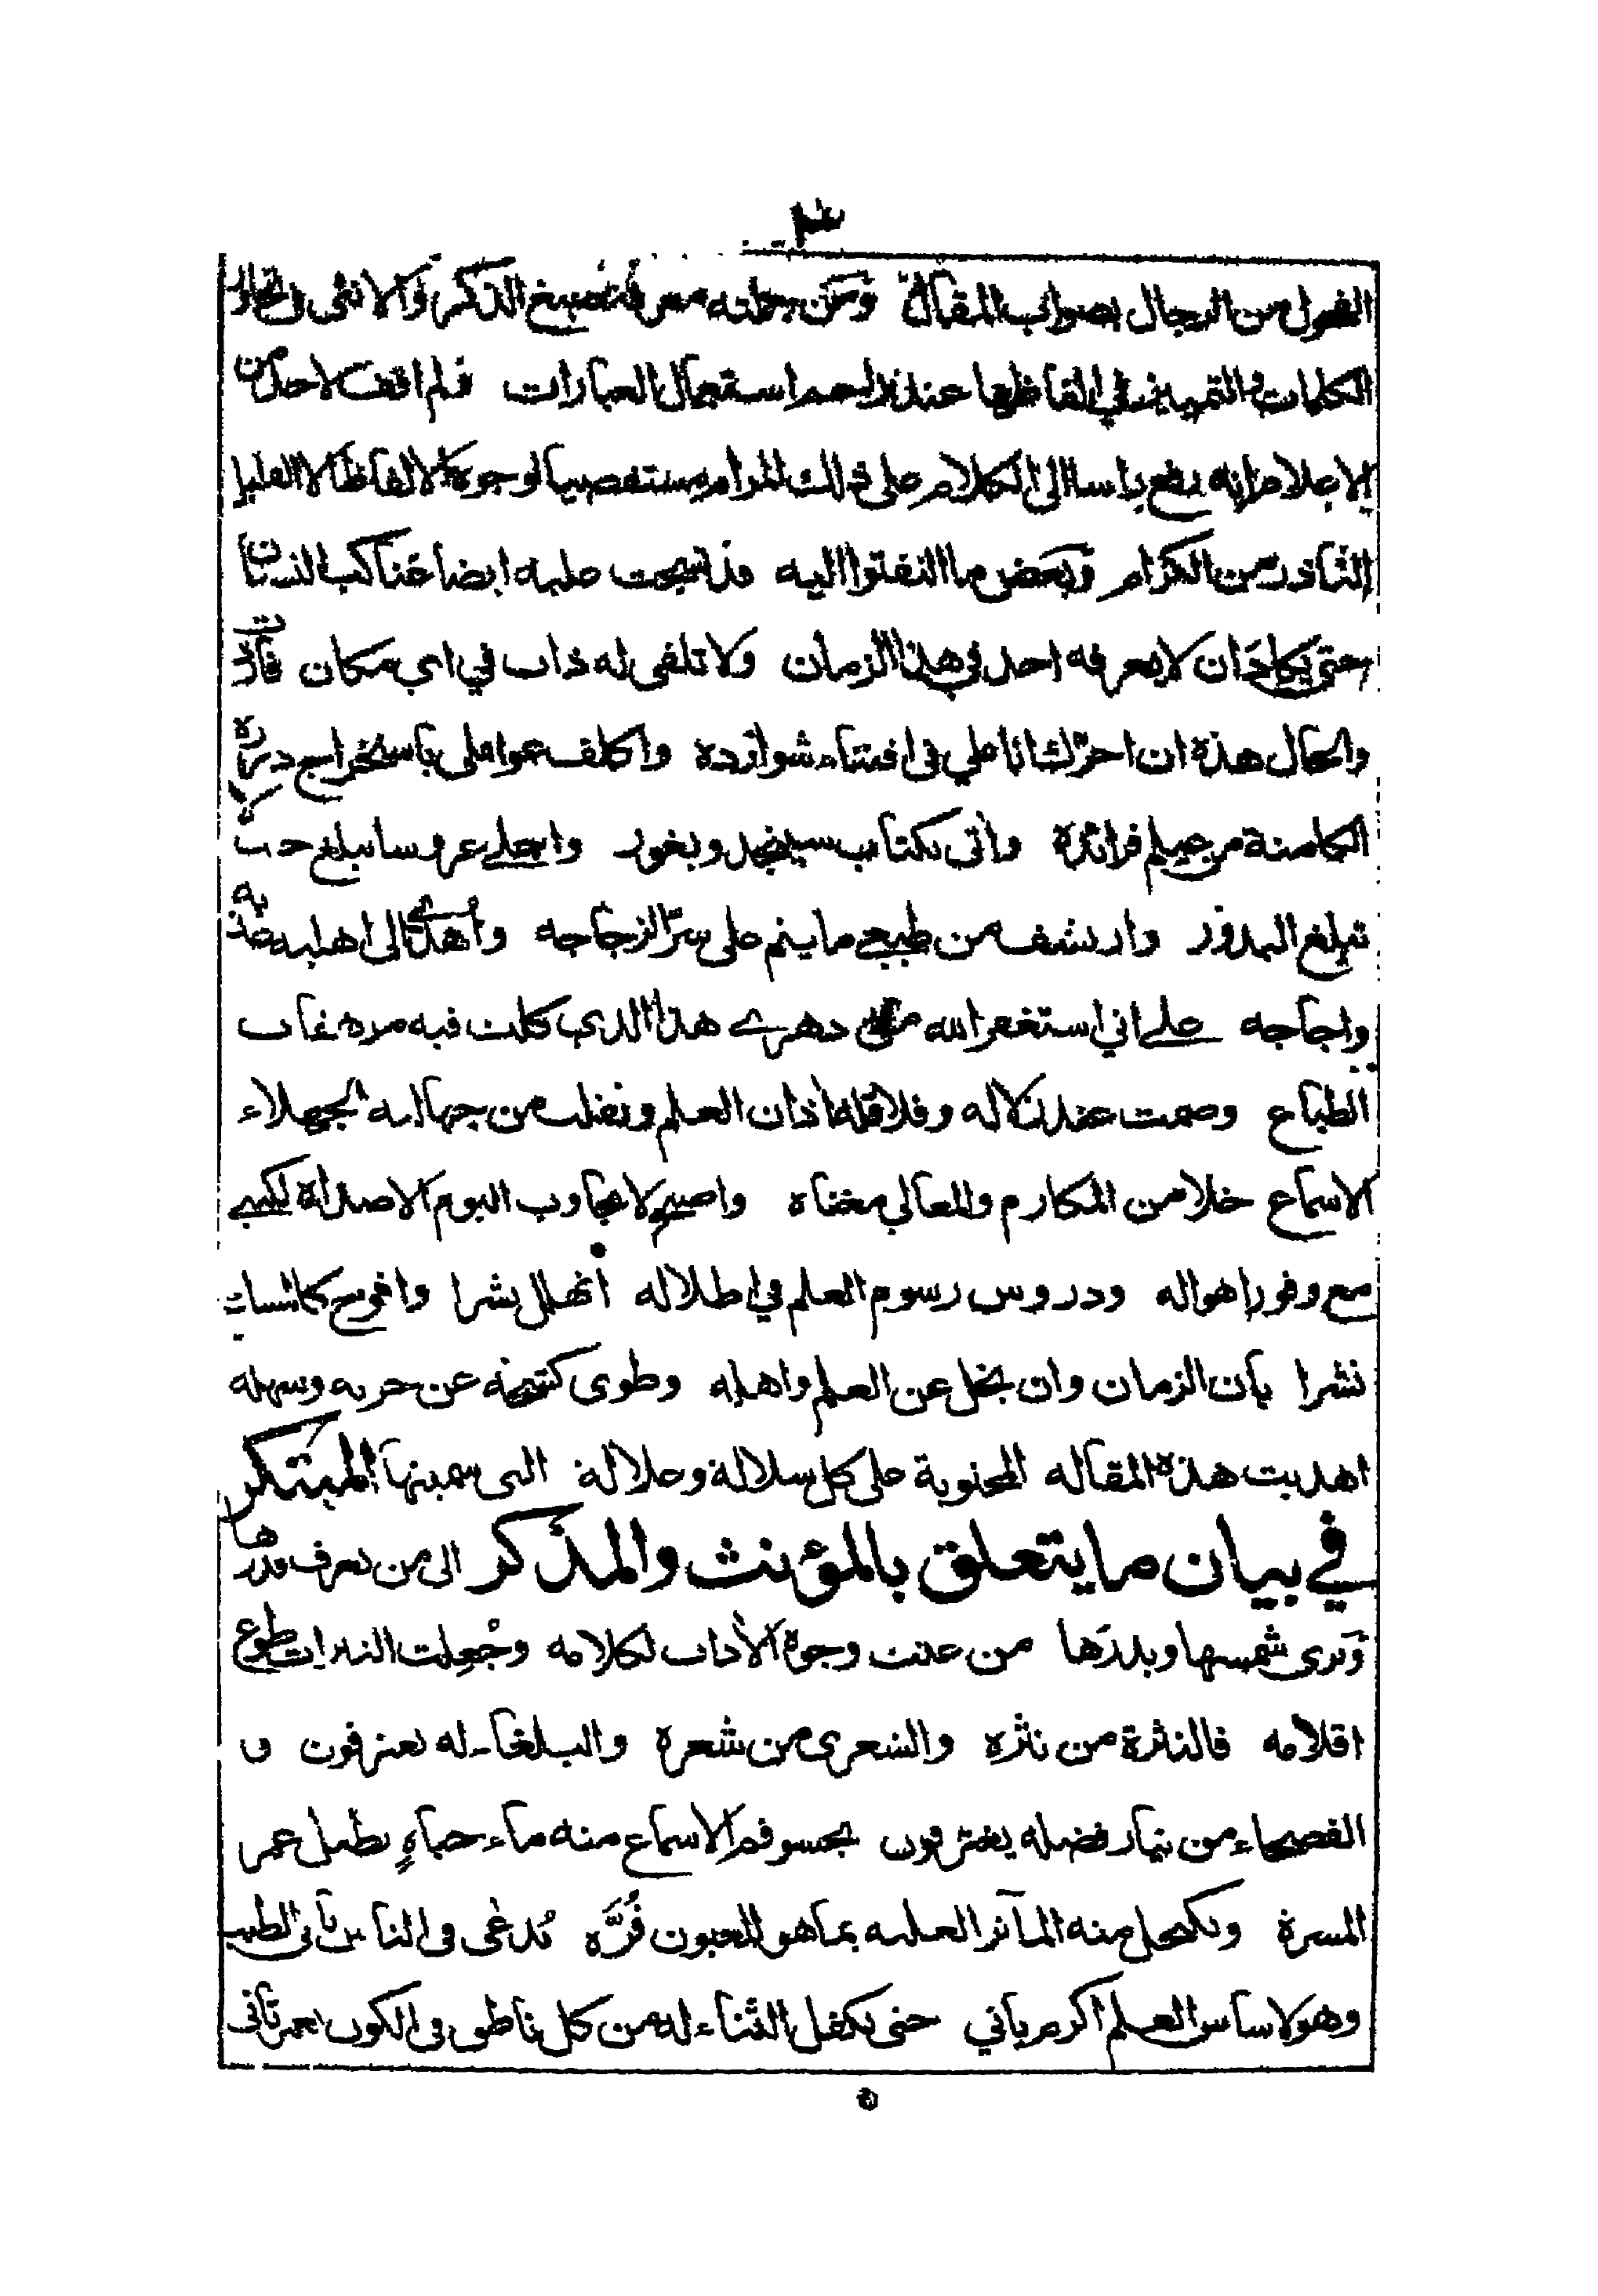 ٣
الفحول من الرجال بصواب المقال ومن جملته معرفة صيغ الذكر والانثى
الكلمات والتمييز في الفاظها عند استعمال العبارات فلم اقف لاحد من
الاعلام انه رفع راسا الى الكلام على ذلك المرام مستقصيا لوجوه الالفاظ الا القليل
من الكرام وبعض ما التفتوا اليه قد نسجت عليه ايضا عناكب النسيان
حتى يكاد ان لا يعرفه احد في هذا الزمان ولا تلفى له ذاب في اي مكان
والحال هذه ان احرك اناملي في افتناء شوارده واكلف عواملي باستخراج درره
الكامنة من فرائده واتى بكتاب سينجد ويغور واجلي عروسا تبلغ حيث لا
تبلغ البدور وارشف من طبعي ما ينم على سر الزجاجه وأهدي الى اهليه عذبه
واجاجه على اني استغفر الله من دهري هذا الذي كلت فيه مرهفات
الطباع وصمت عند اذان العلم ونقلت من جهالة الجهلاء
الاسماع خلا من المكارم والمعالي مغناه واصبح لا يجاوب اليوم الا صداه لكني
مع وفور اهواله ودروس رسوم العلم في اطلاله اتهلل بشرا وافوح كالنسمات
نشرا بأن الزمان وان بخل عن العلم واهله وطوى كشحه عن حزنه وسهله
اهديت هذه المقاله المحتوية على كل سلالة وعلالة التى سميتها المبتكر
في بيان ما يتعلق بالمؤنث والمذكر الى من يعرف قدرها
ويرى شمسها وبدرها من عنت وجوه الآداب لكلامه وجعلت النيرات طوع
اقلامه فالنثرة من نثره والشعرى من شعره والبلغاء له يعترفون و
الفصحاء من بحار فضله يغترفون يحسو فم الاسماع منه ماء حياةٍ يطيل عمر
المسرة وتكتحل منه المآثر العلية بما هو للعيون قُرَّه يُدعى في الناس
وهو لاساس العلم اكرم باني حتى تكفل الثناء له من كل ناطق في الكون